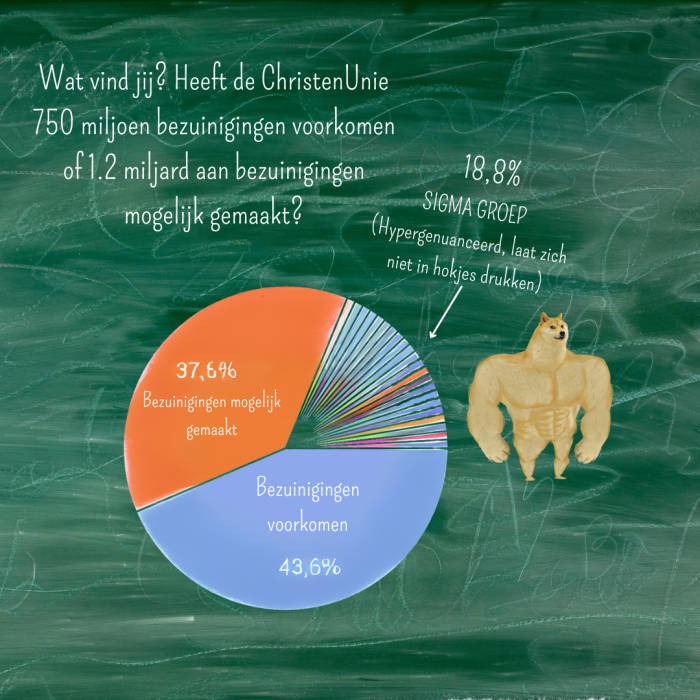 Wat vind jij? Heeft de ChristenUnie
750 miljoen bezuinigingen voorkomen
of 1.2 miljard aan bezuinigingen
mogelijk gemaakt?
18,8%
SIGMA GROEP
(Hypergenuanceerd, laat zich
niet in hokjes drukken)
37,6%
Bezuinigingen mogelijk
gemaakt
Bezuinigingen
voorkomen
43,6%